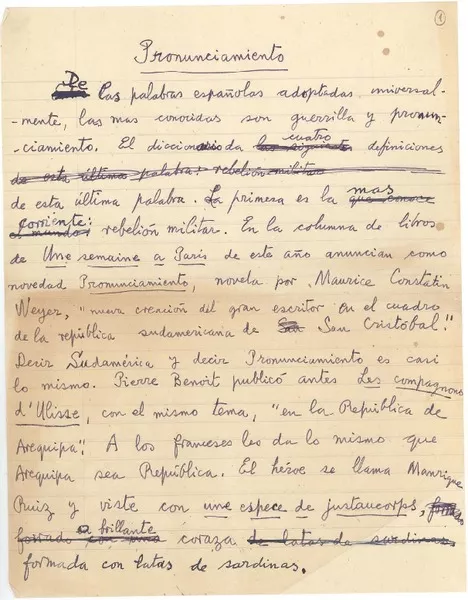 1
Pronunciamiento
De las palabras españolas adoptadas universal-
-mente, las mas conocidas son guerrilla y pronun-
-ciamiento. El diccionario da cuatro definiciones
de esta última palabra: rebelión militar
de esta última palabra. La primera es la mas
corriente: rebelión militar. En la columna de libros
de Une semaine a Paris de este año anuncian como
novedad Pronunciamiento, novela por Maurice Constatin
Weyer, "nueva creación del gran escritor en el cuadro
de la república sudamericana de San Cristóbal".
Decir Sudamérica y decir Pronunciamiento es casi
lo mismo. Pierre Benoit publicó antes Les compagnons
d'Ulisse, con el mismo tema, "en la República de
Arequipa". A los franceses les da lo mismo que
Arequipa sea República. El héroe se llama Manrique
Ruiz y viste con une espece de justaucorps,
o brillante coraza de latas de sardinas
formada con latas de sardinas.